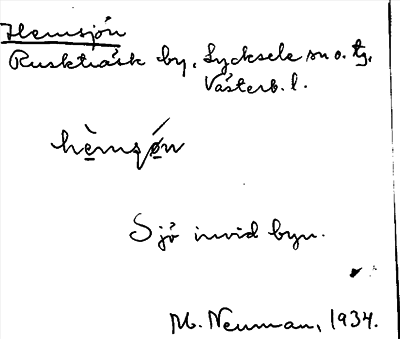 Hemsjön
Ruskträsk by, Lycksele sn o. tg,
Västerb. l.
hèmsǿn
Sjö invid byn.
M. Neuman, 1934.